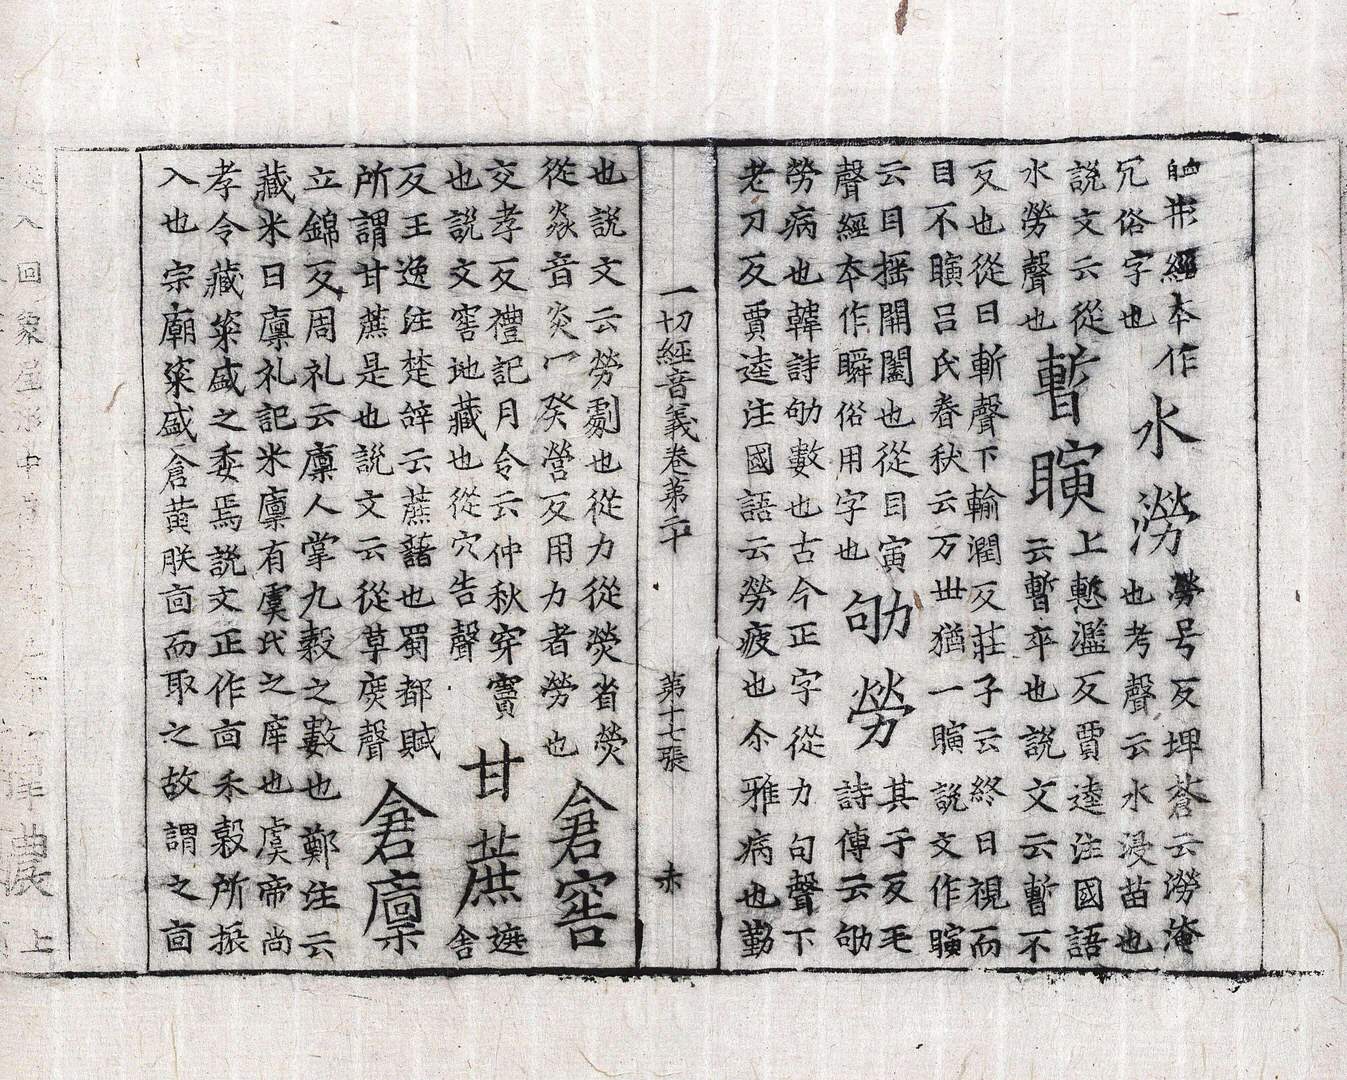 形經本作
冗俗字也
水澇
勞号反埤蒼云澇淹
也考聲云水浸苗也
說文云從
水勞聲也
暫瞚
上慙濫反賈逵注國語
云暫卒也說文云暫不
反也從日斬聲下輸潤反莊子云終日視而
目不瞚呂氏春秋云万世猶一瞚說文作瞚
云目揺開闔也從目寅
聲經本作瞬俗用字也
劬勞
其于反毛
詩傳云劬
勞病也韓詩劬數也古今正字從力句聲下
老刀反賈逵注國語云勞疲也尒雅病也勤
一切經音義卷第二十 第十七張 赤
也說文云勞劇也從力從熒省熒
從焱音炎冖癸營反用力者勞也
倉窖
交孝反禮記月令云仲秋穿竇
也說文窖地藏也從穴告聲
甘蔗
遮
舍
反王逸注楚辝云蔗藷也蜀都賦
所謂甘蔗是也說文云從草庶聲
倉廩
立錦反周礼云廩人掌九穀之數也鄭注云
藏米曰廩礼記米廩有虞氏之庠也虞帝尚
孝令藏粢盛之委焉說文正作㐭禾穀所振
入也宗廟粢盛倉黃朕㐭而取之故謂之㐭